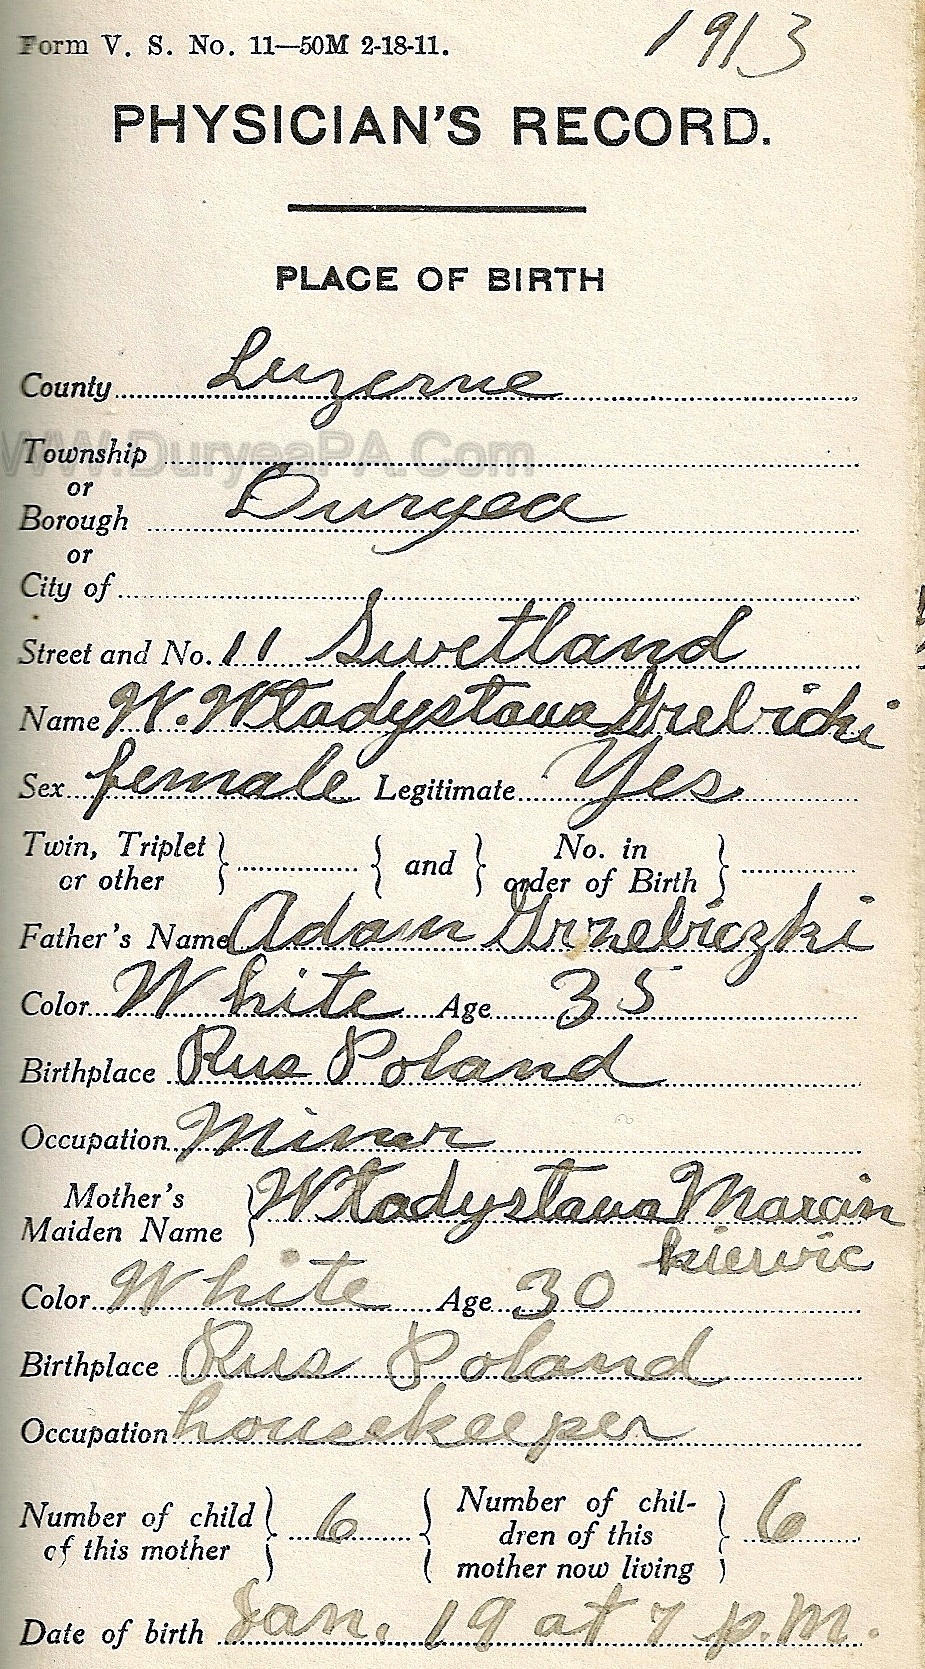 Form V. S. No. 11—50M 2-18-11. 1913
PHYSICIAN'S RECORD.
PLACE OF BIRTH
County Luzerne
WWW.DuryeaPA.Com
Township
or
Borough Duryea
or
City of
Street and No. 11 Swetland
Name W. Władysława Grebicki
Sex female Legitimate Yes
Twin, Triplet or other } { and } No. in order of Birth }
Father's Name Adam Grzebiczki
Color White Age 35
Birthplace Rus Poland
Occupation Miner
Mother's Maiden Name } Władysława Marcin
kiewic
Color White Age 30
Birthplace Rus Poland
Occupation housekeeper
Number of child of this mother } 6 { Number of chil-
dren of this
mother now living } 6
Date of birth Jan. 19 at 7 p.M.